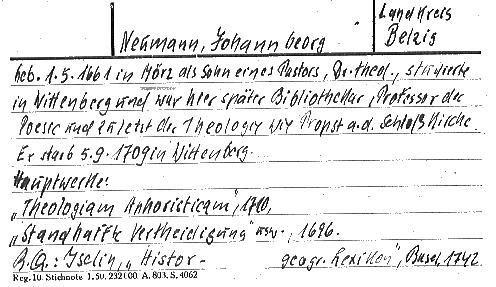 Neumann, Johann Georg
Landkreis
Belzig
Geb. 1.5.1661 in Mörz als Sohn eines Pastors, Dr. theol., studierte
in Wittenberg und war hier später Bibliothekar, Professor der
Poesie und zuletzt der Theologie wie Propst a.d. Schloß Kirche.
Er starb 5.9.1709 in Wittenberg.
Hauptwerke:
„Theologiam Aphoristicam", 1710,
„Standhaffte Vertheidigung" usw., 1696.
B.Q.: Iselin, „Histor - geogr. Lexikon", Basel, 1742
Reg. 10. Stichnote 1. 50. 232100. A. 803. S. 4062